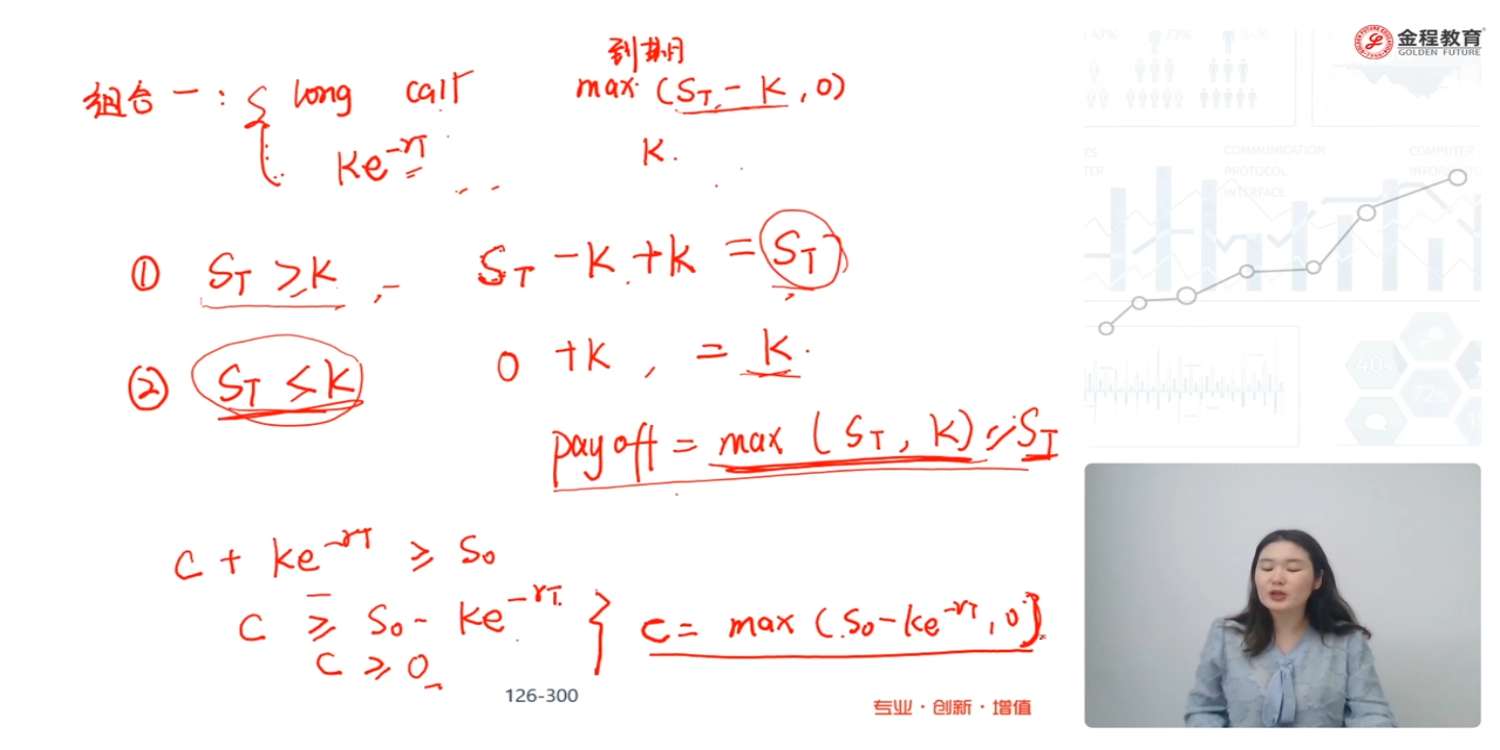 金程教育
GOLDEN FUTURE
到期
组合一: { long call max (S_T - K, 0)
Ke^{-rT} K.
① S_T ≥ K, S_T - K + K = S_T
② S_T ≤ K 0 + K, = K.
payoff = max (S_T, K) ≥ S_T
C + Ke^{-rT} ≥ S_0
C ≥ S_0 - Ke^{-rT}
C ≥ 0 } C = max (S_0 - Ke^{-rT}, 0)
126-300
专业·创新·增值
COMMUNICATION
PROTOCOL
INTERFACE
COMPUTER